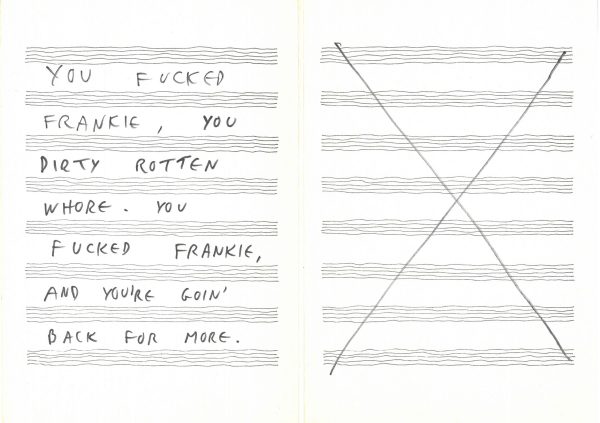 YOU FUCKED
FRANKIE, YOU
DIRTY ROTTEN
WHORE. YOU
FUCKED FRANKIE,
AND YOU'RE GOIN'
BACK FOR MORE.